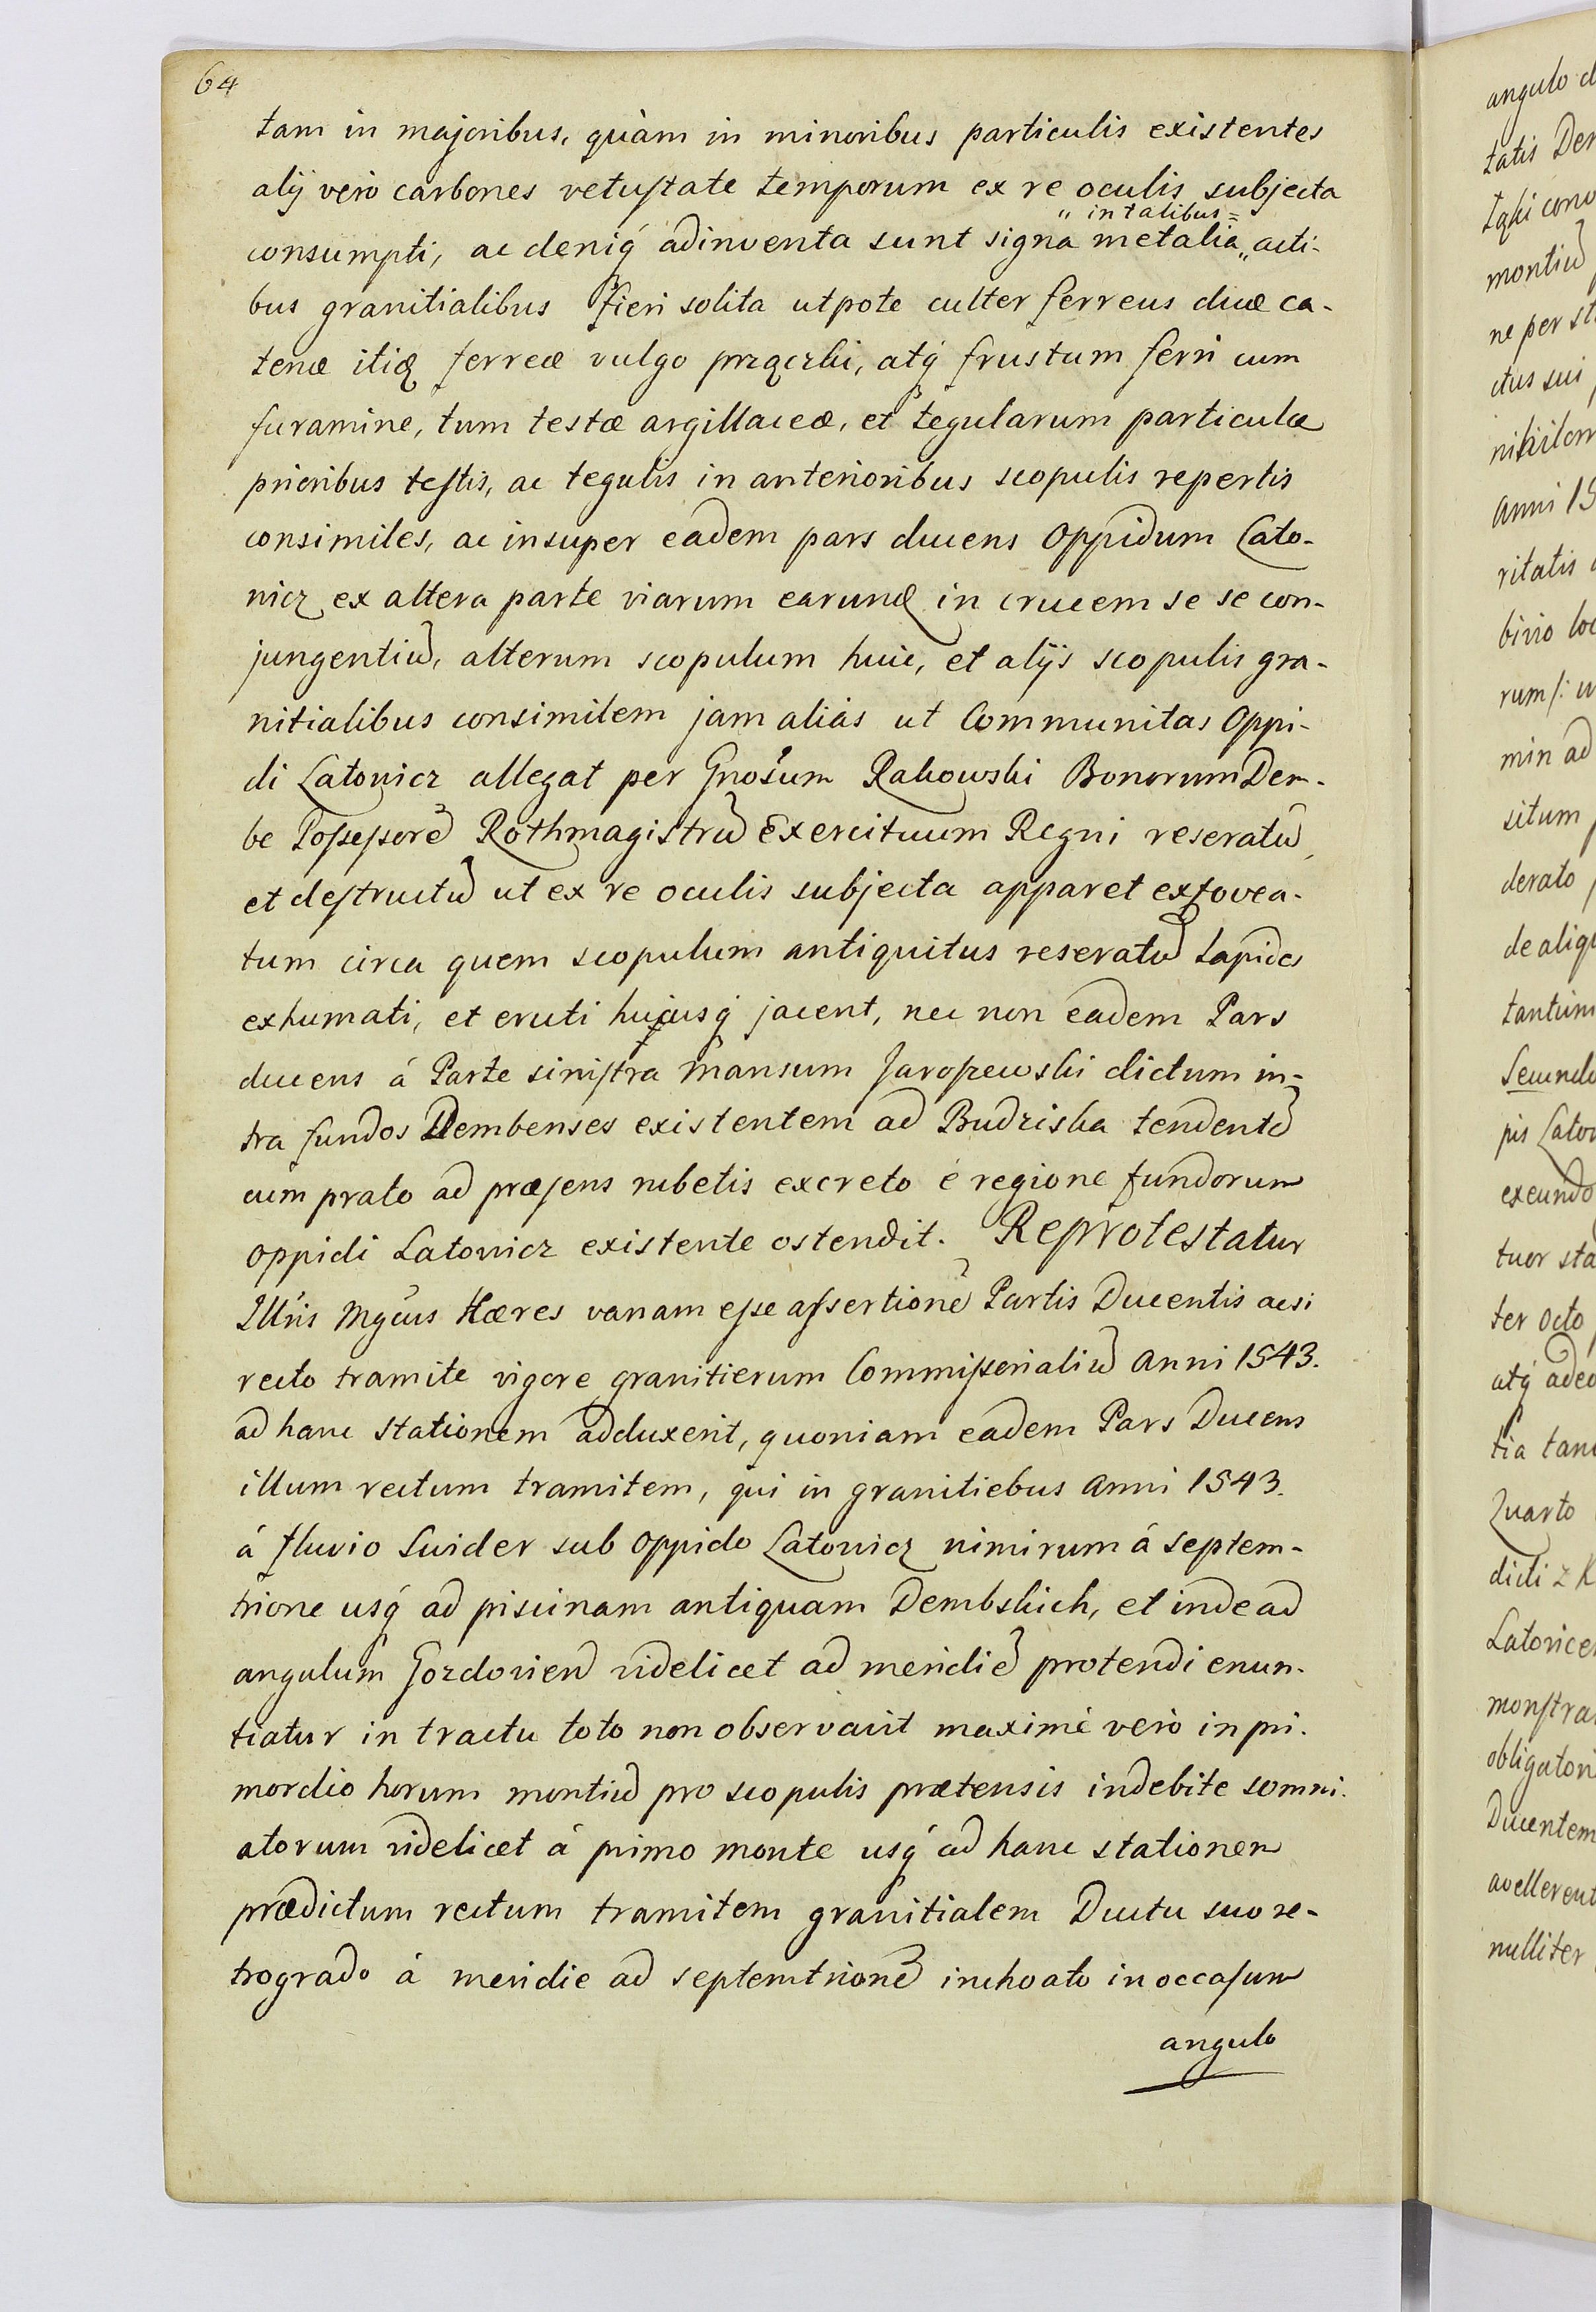 64
tam in majoribus, quàm in minoribus particulis existentes
alij verò carbones vetustate temporum ex re oculis subjecta
„ in talibus =
consumpti, ac deniq́ adinventa sunt signa metalia „ acti-
bus granitialibus fieri solita utpote culter ferreus duæ ca-
tenæ itiđ ferreæ vulgo przączki, atq́ frustum ferri cum
furamine, tum testæ argillaceæ, et tegularum particulæ
prioribus testis, ac tegulis in anterioribus scopulis repertis
consimiles, ac insuper eadem pars ducens Oppidum Lato-
nicz ex altera parte viarum earund in crucem se se con-
jungentiū, alterum scopulum huic, et alijs scopulis gra-
nitialibus consimilem jam aliàs ut Communitas Oppi-
di Latovicz allegat per Gnosum Rakowski Bonorum Dem-
be Possessorē Rothmagistrū Exercituum Regni reseratū,
et destructū ut ex re oculis subjecta apparet exfovea-
tum circa quem scopulum antiquitus reseratū Lapides
exhumati, et eruti hucusq́ jacent, nec non eadem Pars
ducens á Parte sinistra Mansum Jaroszewski dictum in-
tra fundos Dembenses existentem ad Budziska tendentē
cum prato ad præsens rubetis excreto é regione fundorum
oppidi Latovicz existente ostendit. Reprotestatur
Illris Mgcus Hæres vanam esse assertionē Partis Ducentis acsi
recto tramite vigore granitierum Commissorialiū Anni 1543.
ad hanc stationem adduxerit, quoniam eadem Pars Ducens
illum rectum tramitem, qui in granitiebus Anni 1543.
á fluvio Swider sub Oppido Latovicz nimirum á septem-
trione usq́ ad piscinam antiquam Dembskich, et inde ad
angulum Gozdovien videlicet ad meridiē protendi enun-
tiatur in tractu toto non observavit maximè verò in pri-
mordio horum montiū pro scopulis prætensis indebite somni-
atorum videlicet á primo monte usq́ ad hanc stationem
prædictum rectum tramitem granitialem Ductu suo re-
trogrado á meridie ad septemtrionē inchoato in occasum
angulo
angulo d
tatis Dem
montiū
ne per st
ctus sui
ritatis
bivio loc
min ad
situm
derato
de aliqu
tantum
Secundo
pis Latov
exeundo
tuor sta
ter octo
atq́ adeo
tia tan
Quarto
dicti z K
Latovicen
monstra
obligatori
Ducentem
avellerent
nulliter